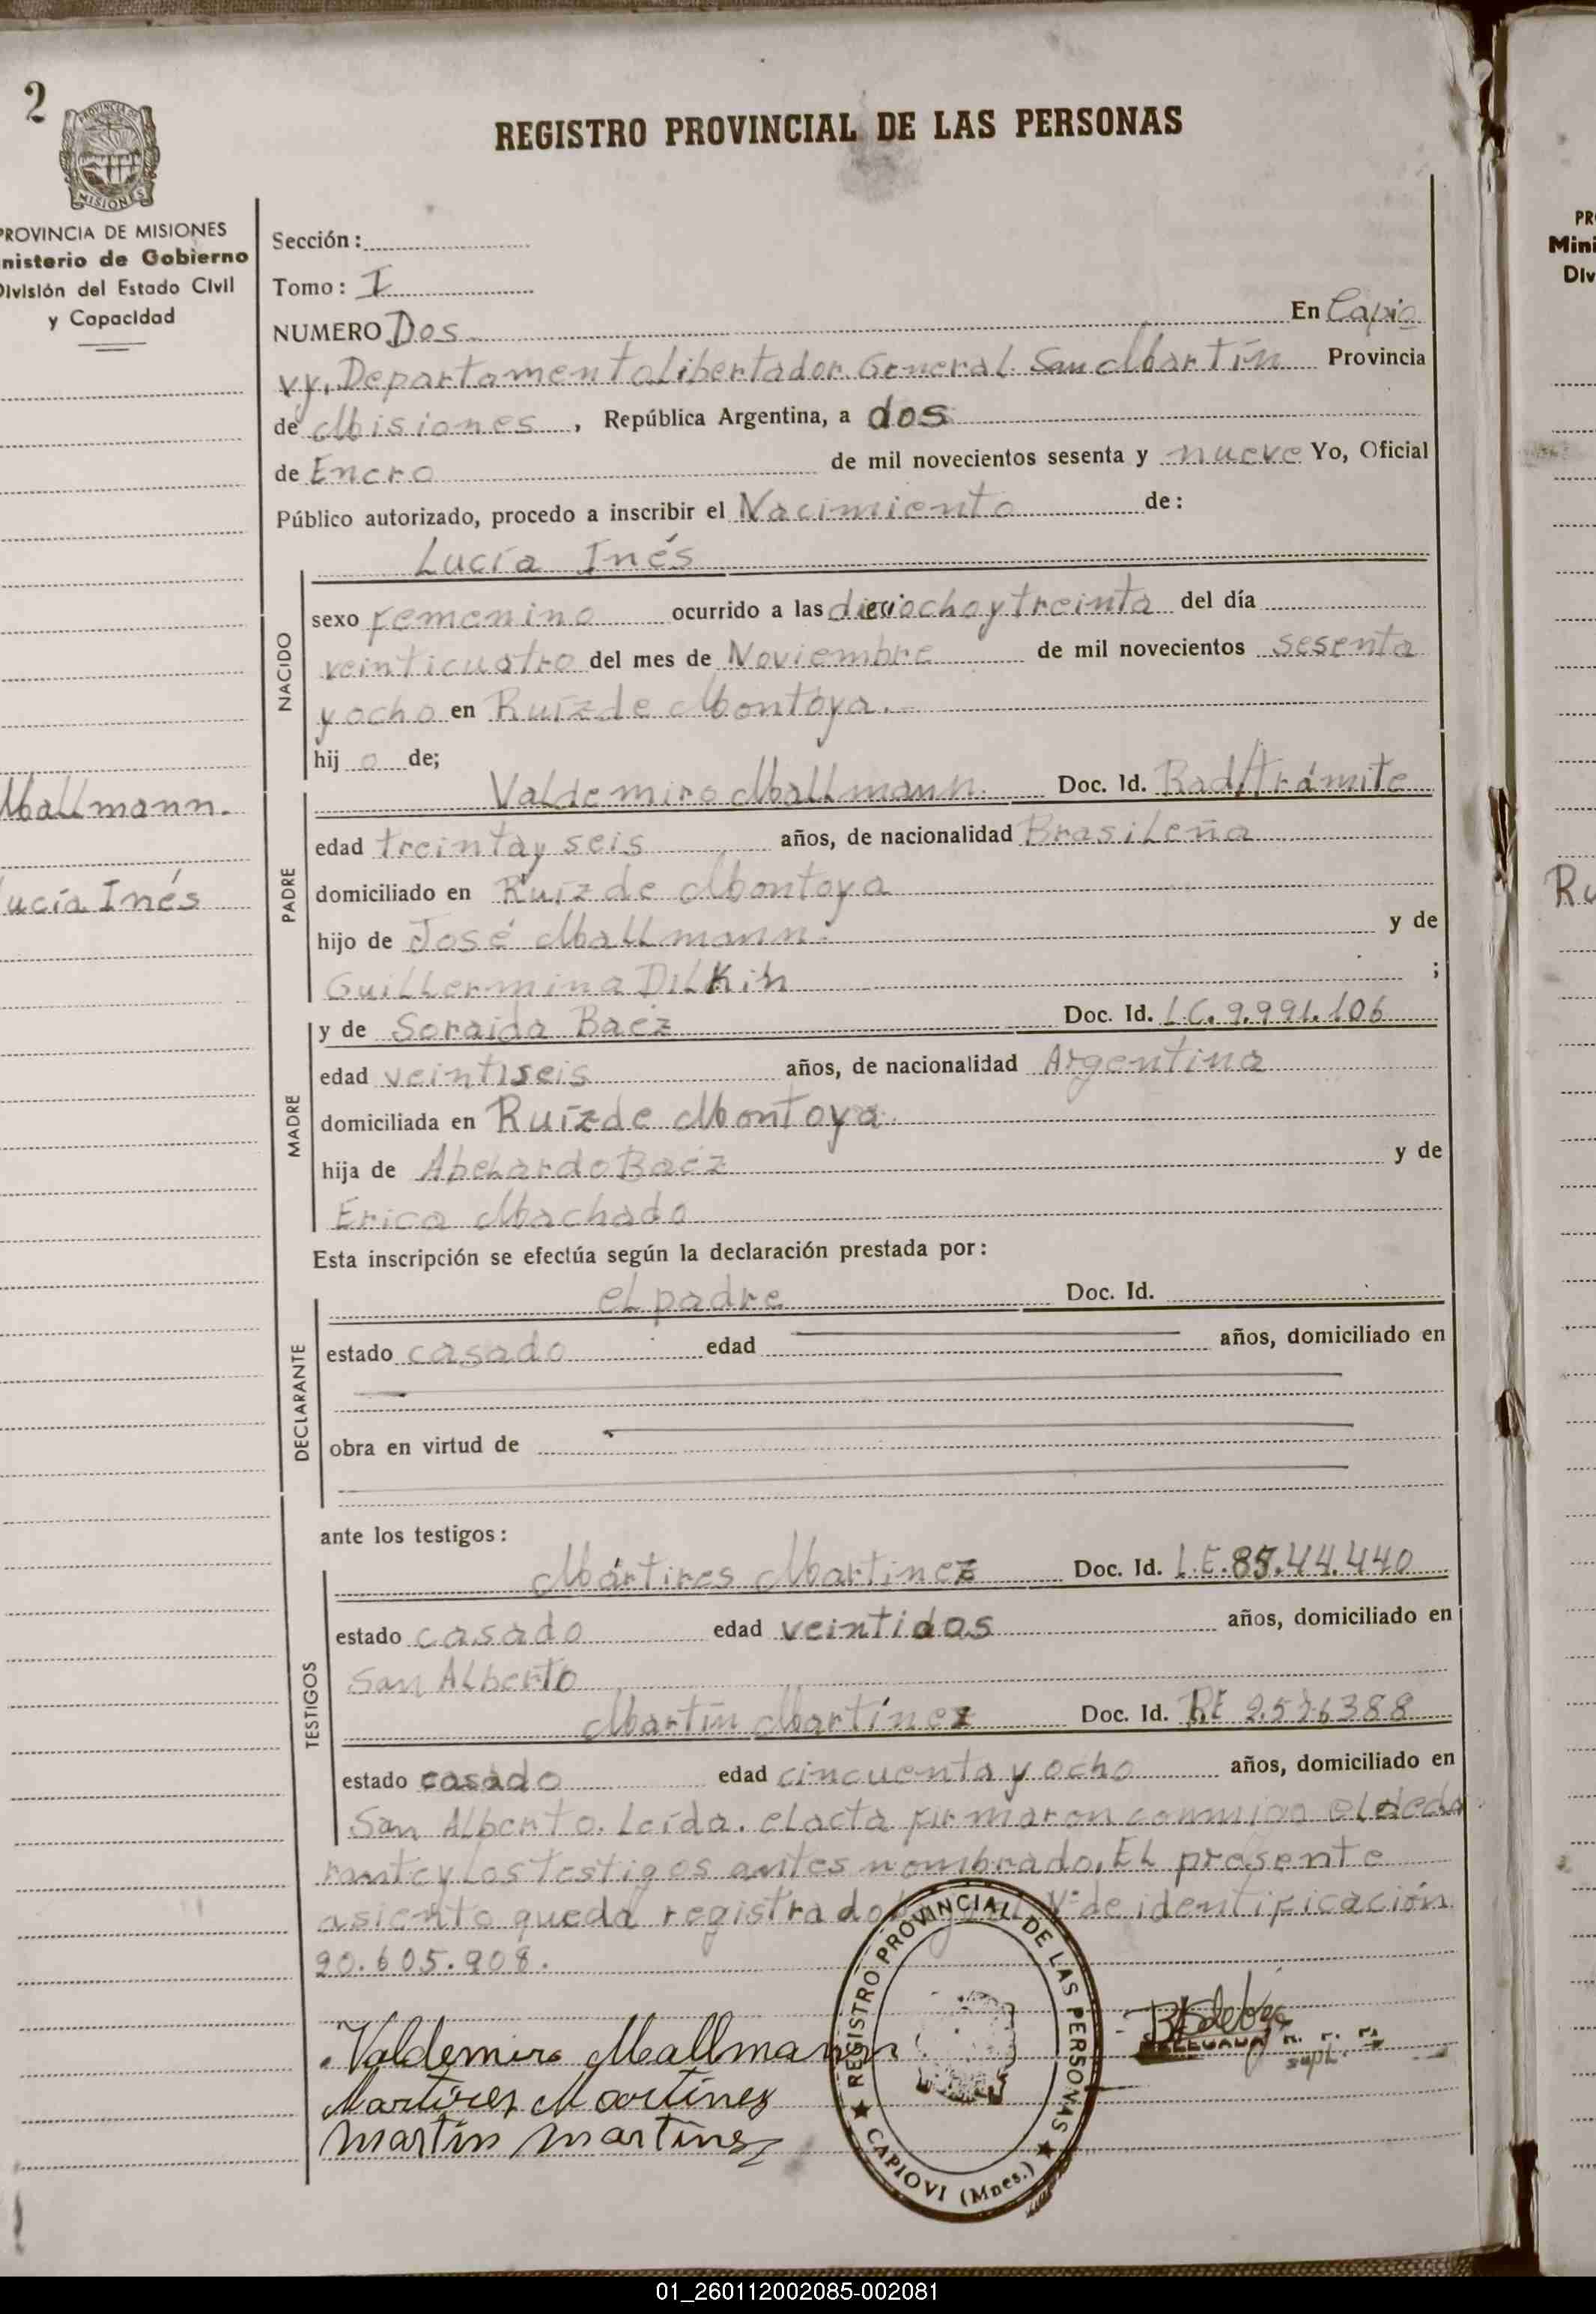 2
PROVINCIA
MISIONES
REGISTRO PROVINCIAL DE LAS PERSONAS
PROVINCIA DE MISIONES
nisterio de Gobierno
División del Estado Civil
y Capacidad
Mallmann.
ucía Inés
Sección:
Tomo: I
NUMERO Dos En Capio
vy, Departamento Libertador General San Martín Provincia
de Misiones, República Argentina, a dos
de Enero de mil novecientos sesenta y nueve Yo, Oficial
Público autorizado, procedo a inscribir el Nacimiento de:
Lucía Inés
NACIDO
sexo femenino ocurrido a las dieciocho y treinta del día
veinticuatro del mes de Noviembre de mil novecientos sesenta
y ocho en Ruíz de Montoya.
hij a de;
PADRE
Valdemiro Mallmann. Doc. Id. Rad/trámite
edad treinta y seis años, de nacionalidad Brasileña
domiciliado en Ruíz de Montoya
hijo de José Mallmann. y de
Guillermina Dilkin ;
MADRE
y de Soraida Baez Doc. Id. L.C. 9.991.106
edad veintiseis años, de nacionalidad Argentina
domiciliada en Ruíz de Montoya.
hija de Abelardo Baez y de
Erica Machado
Esta inscripción se efectúa según la declaración prestada por:
DECLARANTE
el padre Doc. Id.
estado casado edad años, domiciliado en
obra en virtud de
ante los testigos:
TESTIGOS
Mártires Martinez Doc. Id. L.E. 85.44.440
estado casado edad veintidos años, domiciliado en
San Alberto
Martín Martínez Doc. Id.
estado casado edad cincuenta y ocho años, domiciliado en
San Alberto. Leída. el acta firmaron conmigo el decla
rante y los testigos antes nombrado. El presente
asiento queda registrado Nº de identificación
20.605.908.
Valdemiro Mallmann
Martires Martinez
Martín Martinez
REGISTRO PROVINCIAL DE LAS PERSONAS
CAPIOVI (Mnes.)
DELEGADA
supl.
PR
Mini
Div
Ru
01_260112002085-002081